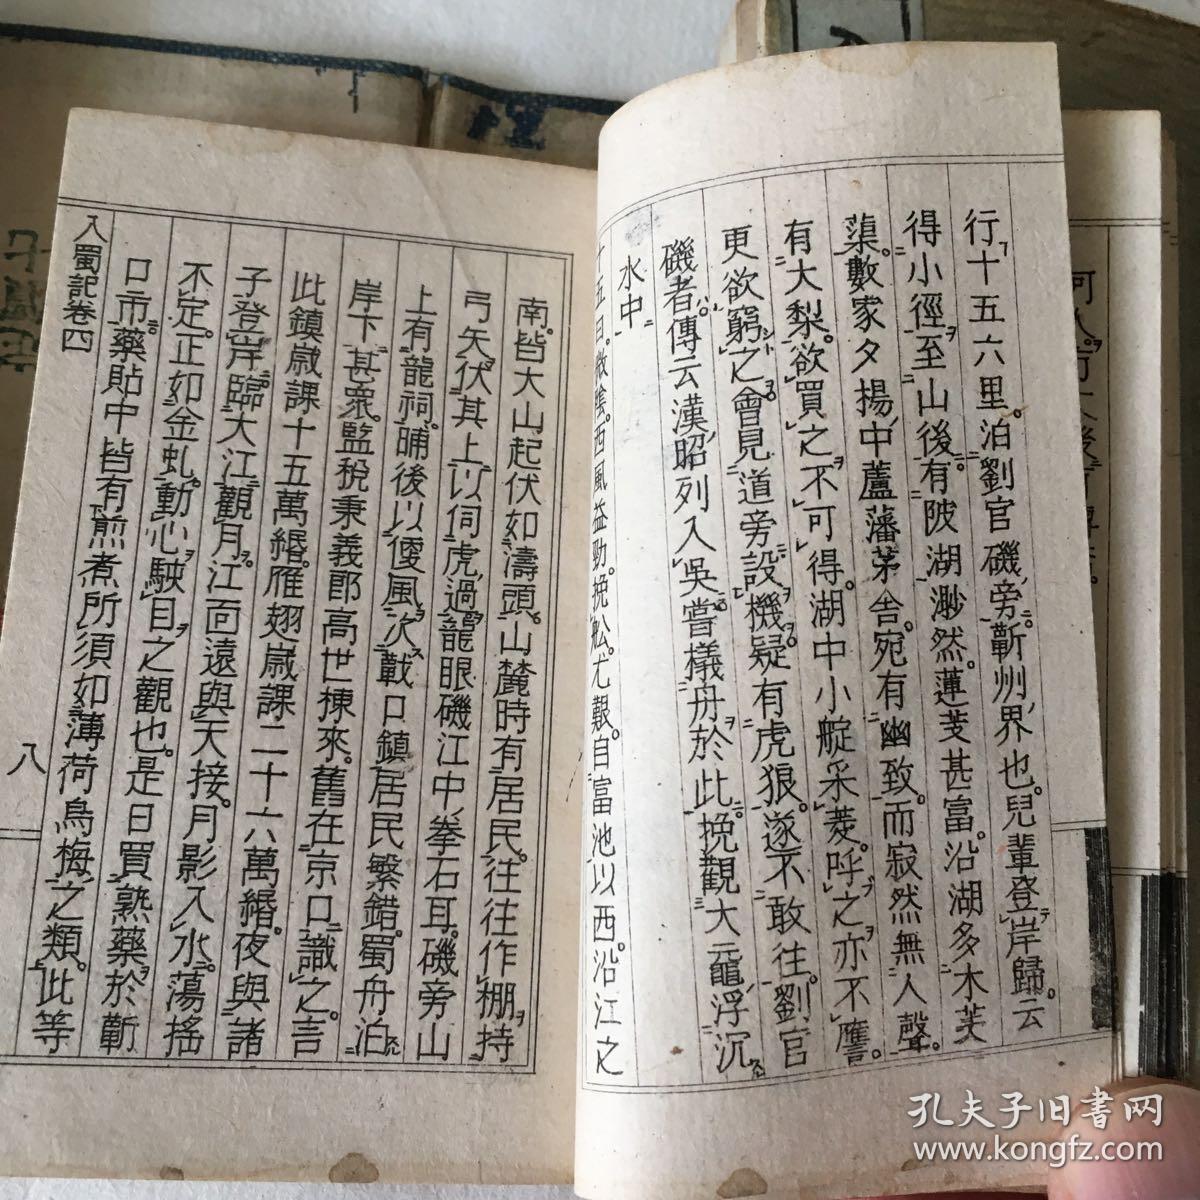 行十五六里。泊劉官磯、旁、蘄州、界也。兒輩登岸歸。云
得小徑至山後。有陂湖渺然。蓮芰甚富。沿湖多木芙
蕖數家夕揚、中蘆藩茅舎。宛有幽致。而寂然無人聲。
有大梨。欲買之不可得。湖中小艇采菱。呼之亦不應。
更欲窮之。會見道旁設機。疑有虎狼。遂不敢往。劉官
磯者。傳云漢昭列入吳。嘗檥舟於此。挽觀大黿浮沉
水中
十五日。微陰。西風益勁。挽舩。尤艱。自富池以西。沿江之
南。皆大山。起伏如濤頭。山麓時有居民。往往作棚。持
弓矢。伏其上。以伺虎。過龍眼磯江中、拳石耳。磯旁山
上有龍祠。晡後以傻風。次戴口鎮居民繁錯。蜀舟泊
岸下甚衆。監稅秉義郎高世棟來。舊在京口。識之。言
此鎮歲課十五萬緡。雁翅歲課二十六萬緡。夜與諸
子登岸。臨大江觀月。江面遠與天接。月影入水。蕩搖
不定。正如金虬。動心駛目之觀也。是日買熟藥於蘄
口市。藥貼中皆有煎煮所須如薄荷烏梅之類。此等
入蜀記卷四
八
孔夫子旧书网
www.kongfz.com